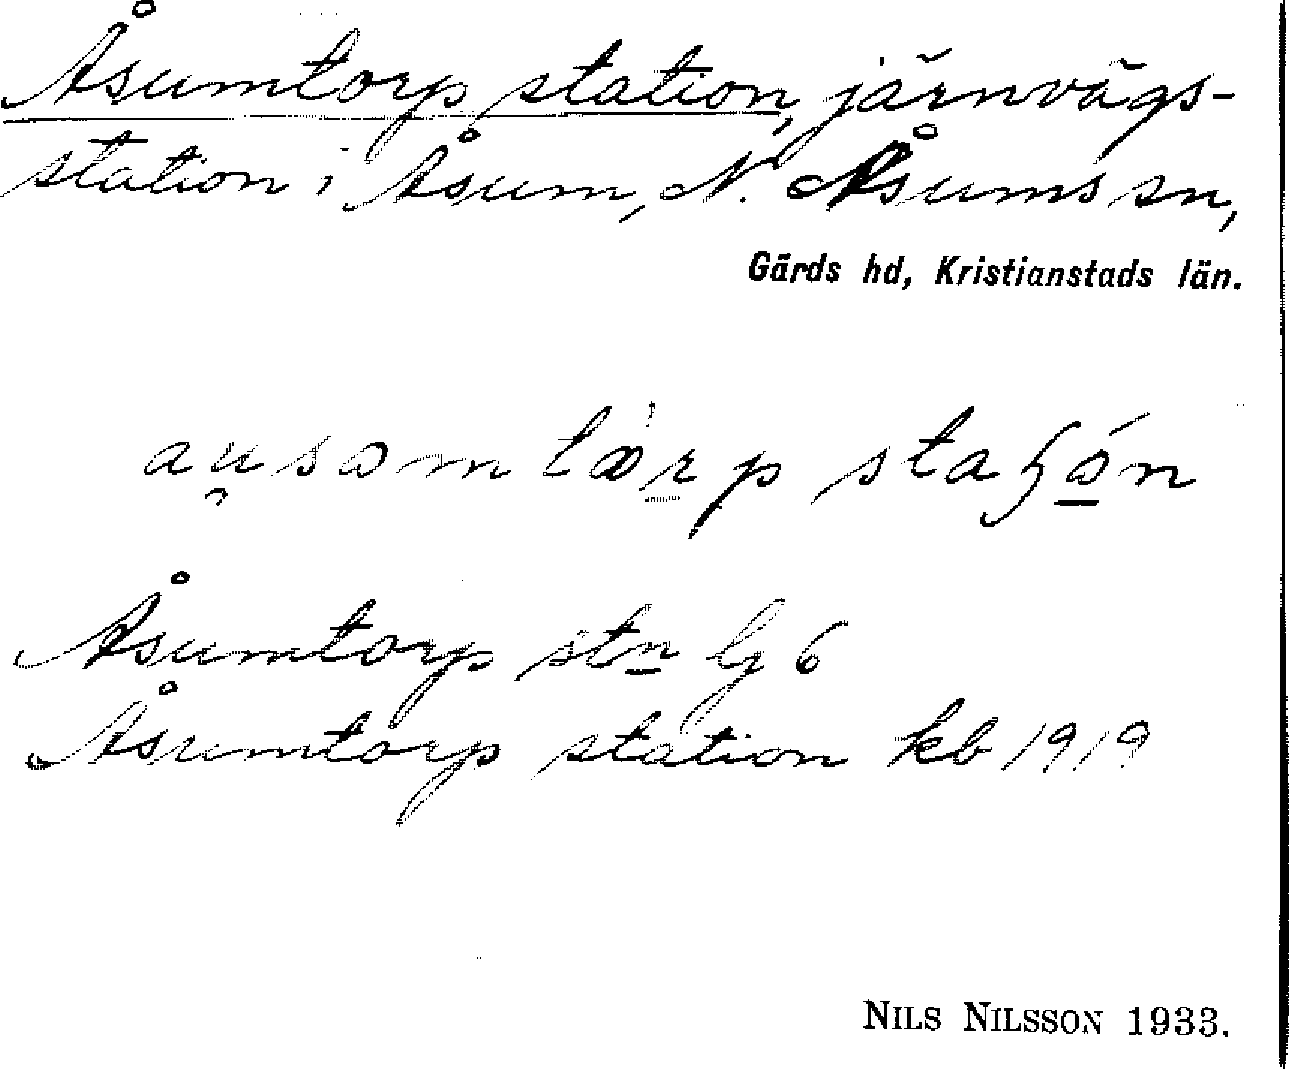 Åsumtorp station, järnvägs-
station i Åsum, N. Åsums sn,
Gärds hd, Kristianstads län.
Åsumtorp stn Gj 6
Åsumtorp station kb 1919
NILS NILSSON 1933.